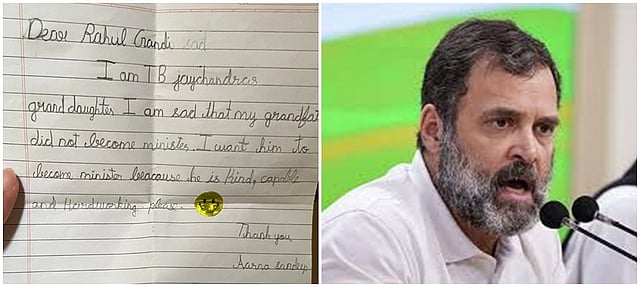 Dear Rahul Gandi
I am TB jaychandras
granddaughter I am sad that my grandfat
did not become minister. I want him to
become minister beacause he is Kind, capable
and Hardworking please.
Thank you
Aarna sandeep